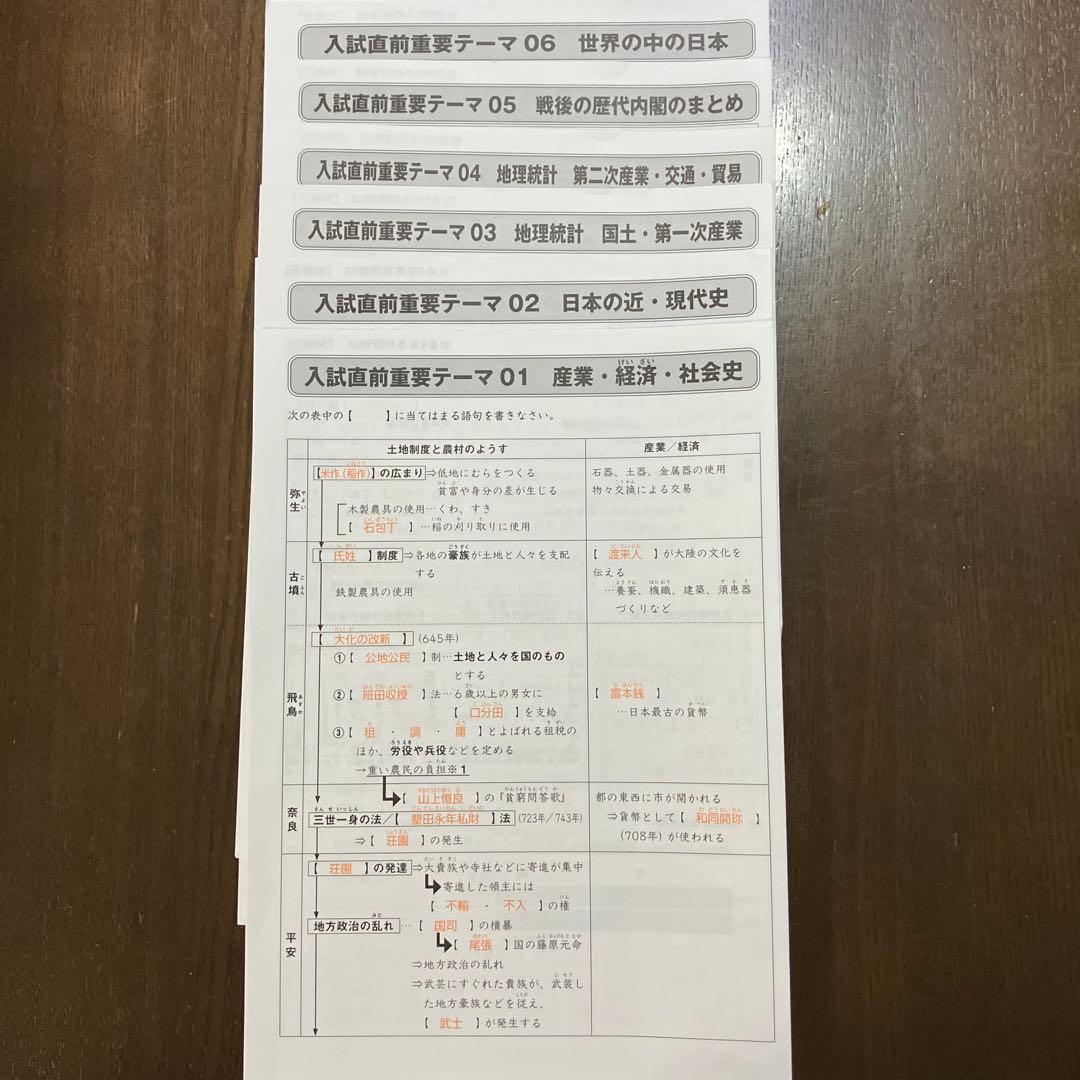 入試直前重要テーマ 06　世界の中の日本
入試直前重要テーマ 05　戦後の歴代内閣のまとめ
入試直前重要テーマ 04　地理統計　第二次産業・交通・貿易
入試直前重要テーマ 03　地理統計　国土・第一次産業
入試直前重要テーマ 02　日本の近・現代史
入試直前重要テーマ 01　産業・経済・社会史
次の表中の【　　】に当てはまる語句を書きなさい。
土地制度と農村のようす
産業／経済
弥生
【米作（稲作）】の広まり⇒低地にむらをつくる
貧富や身分の差が生じる
木製農具の使用…くわ、すき
【 石包丁 】…稲の刈り取りに使用
石器、土器、金属器の使用
物々交換による交易
古墳
【 氏姓 】制度⇒各地の豪族が土地と人々を支配
する
鉄製農具の使用
【 渡来人 】が大陸の文化を
伝える
…養蚕、機織、建築、須恵器
づくりなど
飛鳥
【 大化の改新 】(645年)
①【 公地公民 】制…土地と人々を国のもの
とする
②【 班田収授 】法…6歳以上の男女に
【 口分田 】を支給
③【 租 ・ 調 ・ 庸 】とよばれる租税の
ほか、労役や兵役などを定める
→重い農民の負担※1
【 富本銭 】
…日本最古の貨幣
奈良
【 山上憶良 】の『貧窮問答歌』
三世一身の法／【 墾田永年私財 】法(723年/743年)
⇒【 荘園 】の発生
都の東西に市が開かれる
⇒貨幣として【 和同開珎 】
(708年) が使われる
平安
【 荘園 】の発達⇒大貴族や寺社などに寄進が集中
寄進した領主には
【 不輸 ・ 不入 】の権
地方政治の乱れ…【 国司 】の横暴
【 尾張 】国の藤原元命
⇒地方政治の乱れ
⇒武芸にすぐれた貴族が、武装し
た地方豪族などを従え、
【 武士 】が発生する